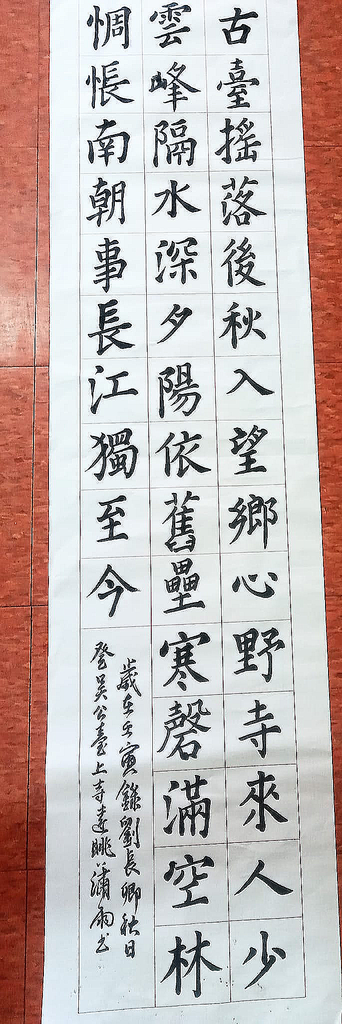 古臺搖落後秋入望鄉心野寺來人少
雲峰隔水深夕陽依舊壘寒磬滿空林
惆悵南朝事長江獨至今
歲在壬寅錄劉長卿秋日
登吳公臺上寺遠眺蒲雨书